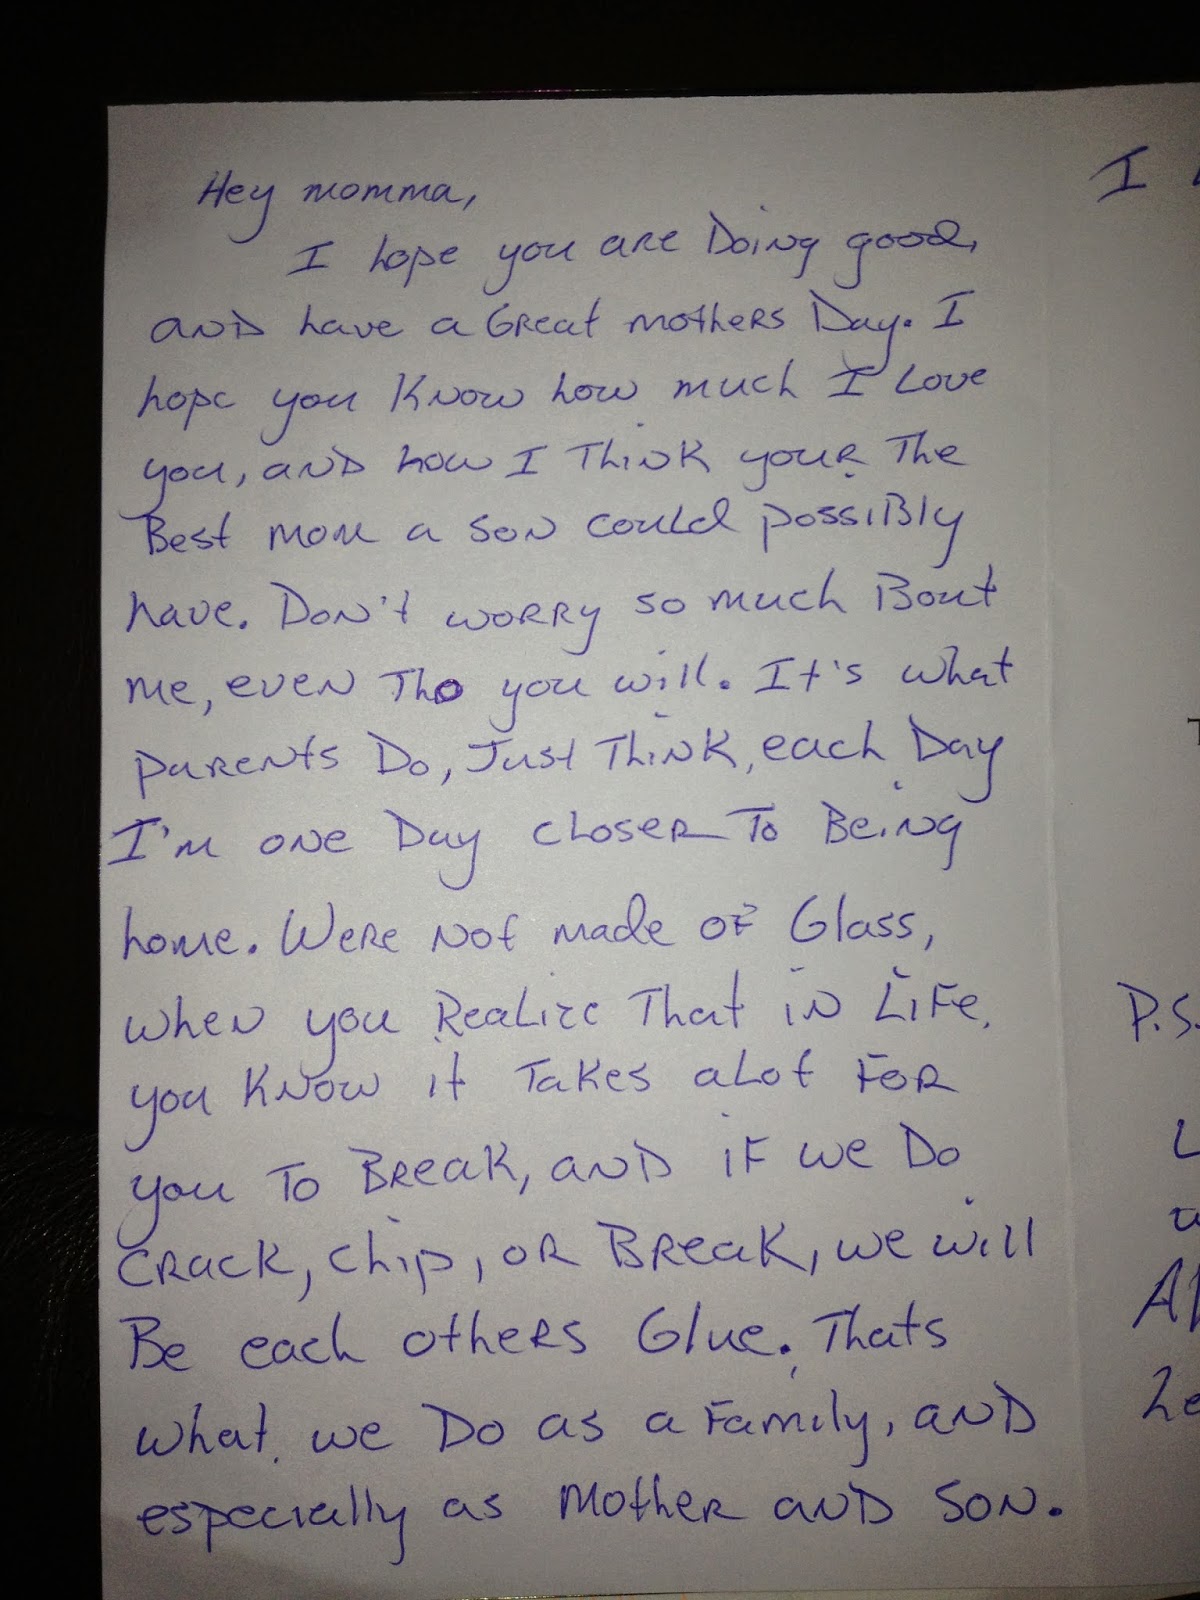 Hey momma,
I hope you are Doing good,
and have a Great mothers Day. I
hope you Know how much I Love
you, and how I Think your The
Best mom a son could possibly
have. Don't worry so much Bout
me, even Tho you will. It's what
parents Do, Just Think, each Day
I'm one Day closer To Being
home. Were not made of Glass,
when you Realize That in Life,
you Know it Takes alot For
you To Break, and if we Do
crack, chip, or Break, we will
Be each others Glue. Thats
what we Do as a Family, and
especially as Mother and son.
I
P.S.